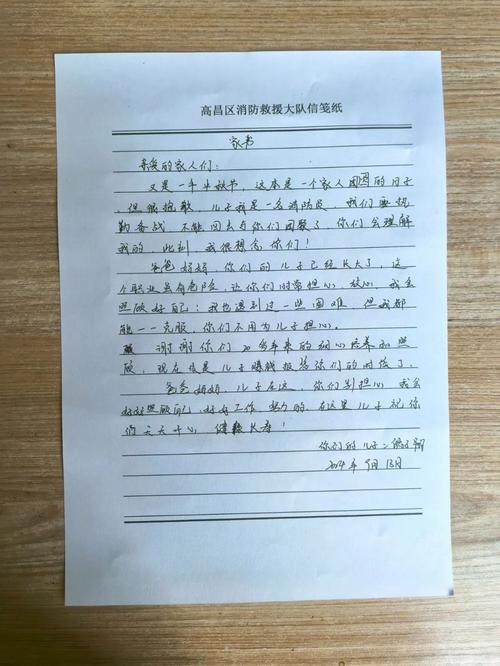 高昌区消防救援大队信笺纸
家书
亲爱的家人们：
又是一年中秋节，这本是一个家人团圆的日子
，但很抱歉，儿子我是一名消防员，我们要执
勤备战，不能回去与你们团聚了，你们会理解
我的，此刻，我很想念你们！
爸爸妈妈，你们的儿子已经长大了，这
个职业虽有危险，让你们时常担心，放心，我会
照顾好自己；我也遇到过一些困难，但我都
能一一克服，你们不用为儿子担心。
谢谢你们20多年来的细心培养和照
顾，现在该是儿子赚钱报答你们的时候了。
爸爸妈妈，儿子在这，你们别担心，我会
好好照顾自己，好好工作，努力的，在这里儿子祝你
们天天开心，健康长寿！
你们的儿子：
月13日